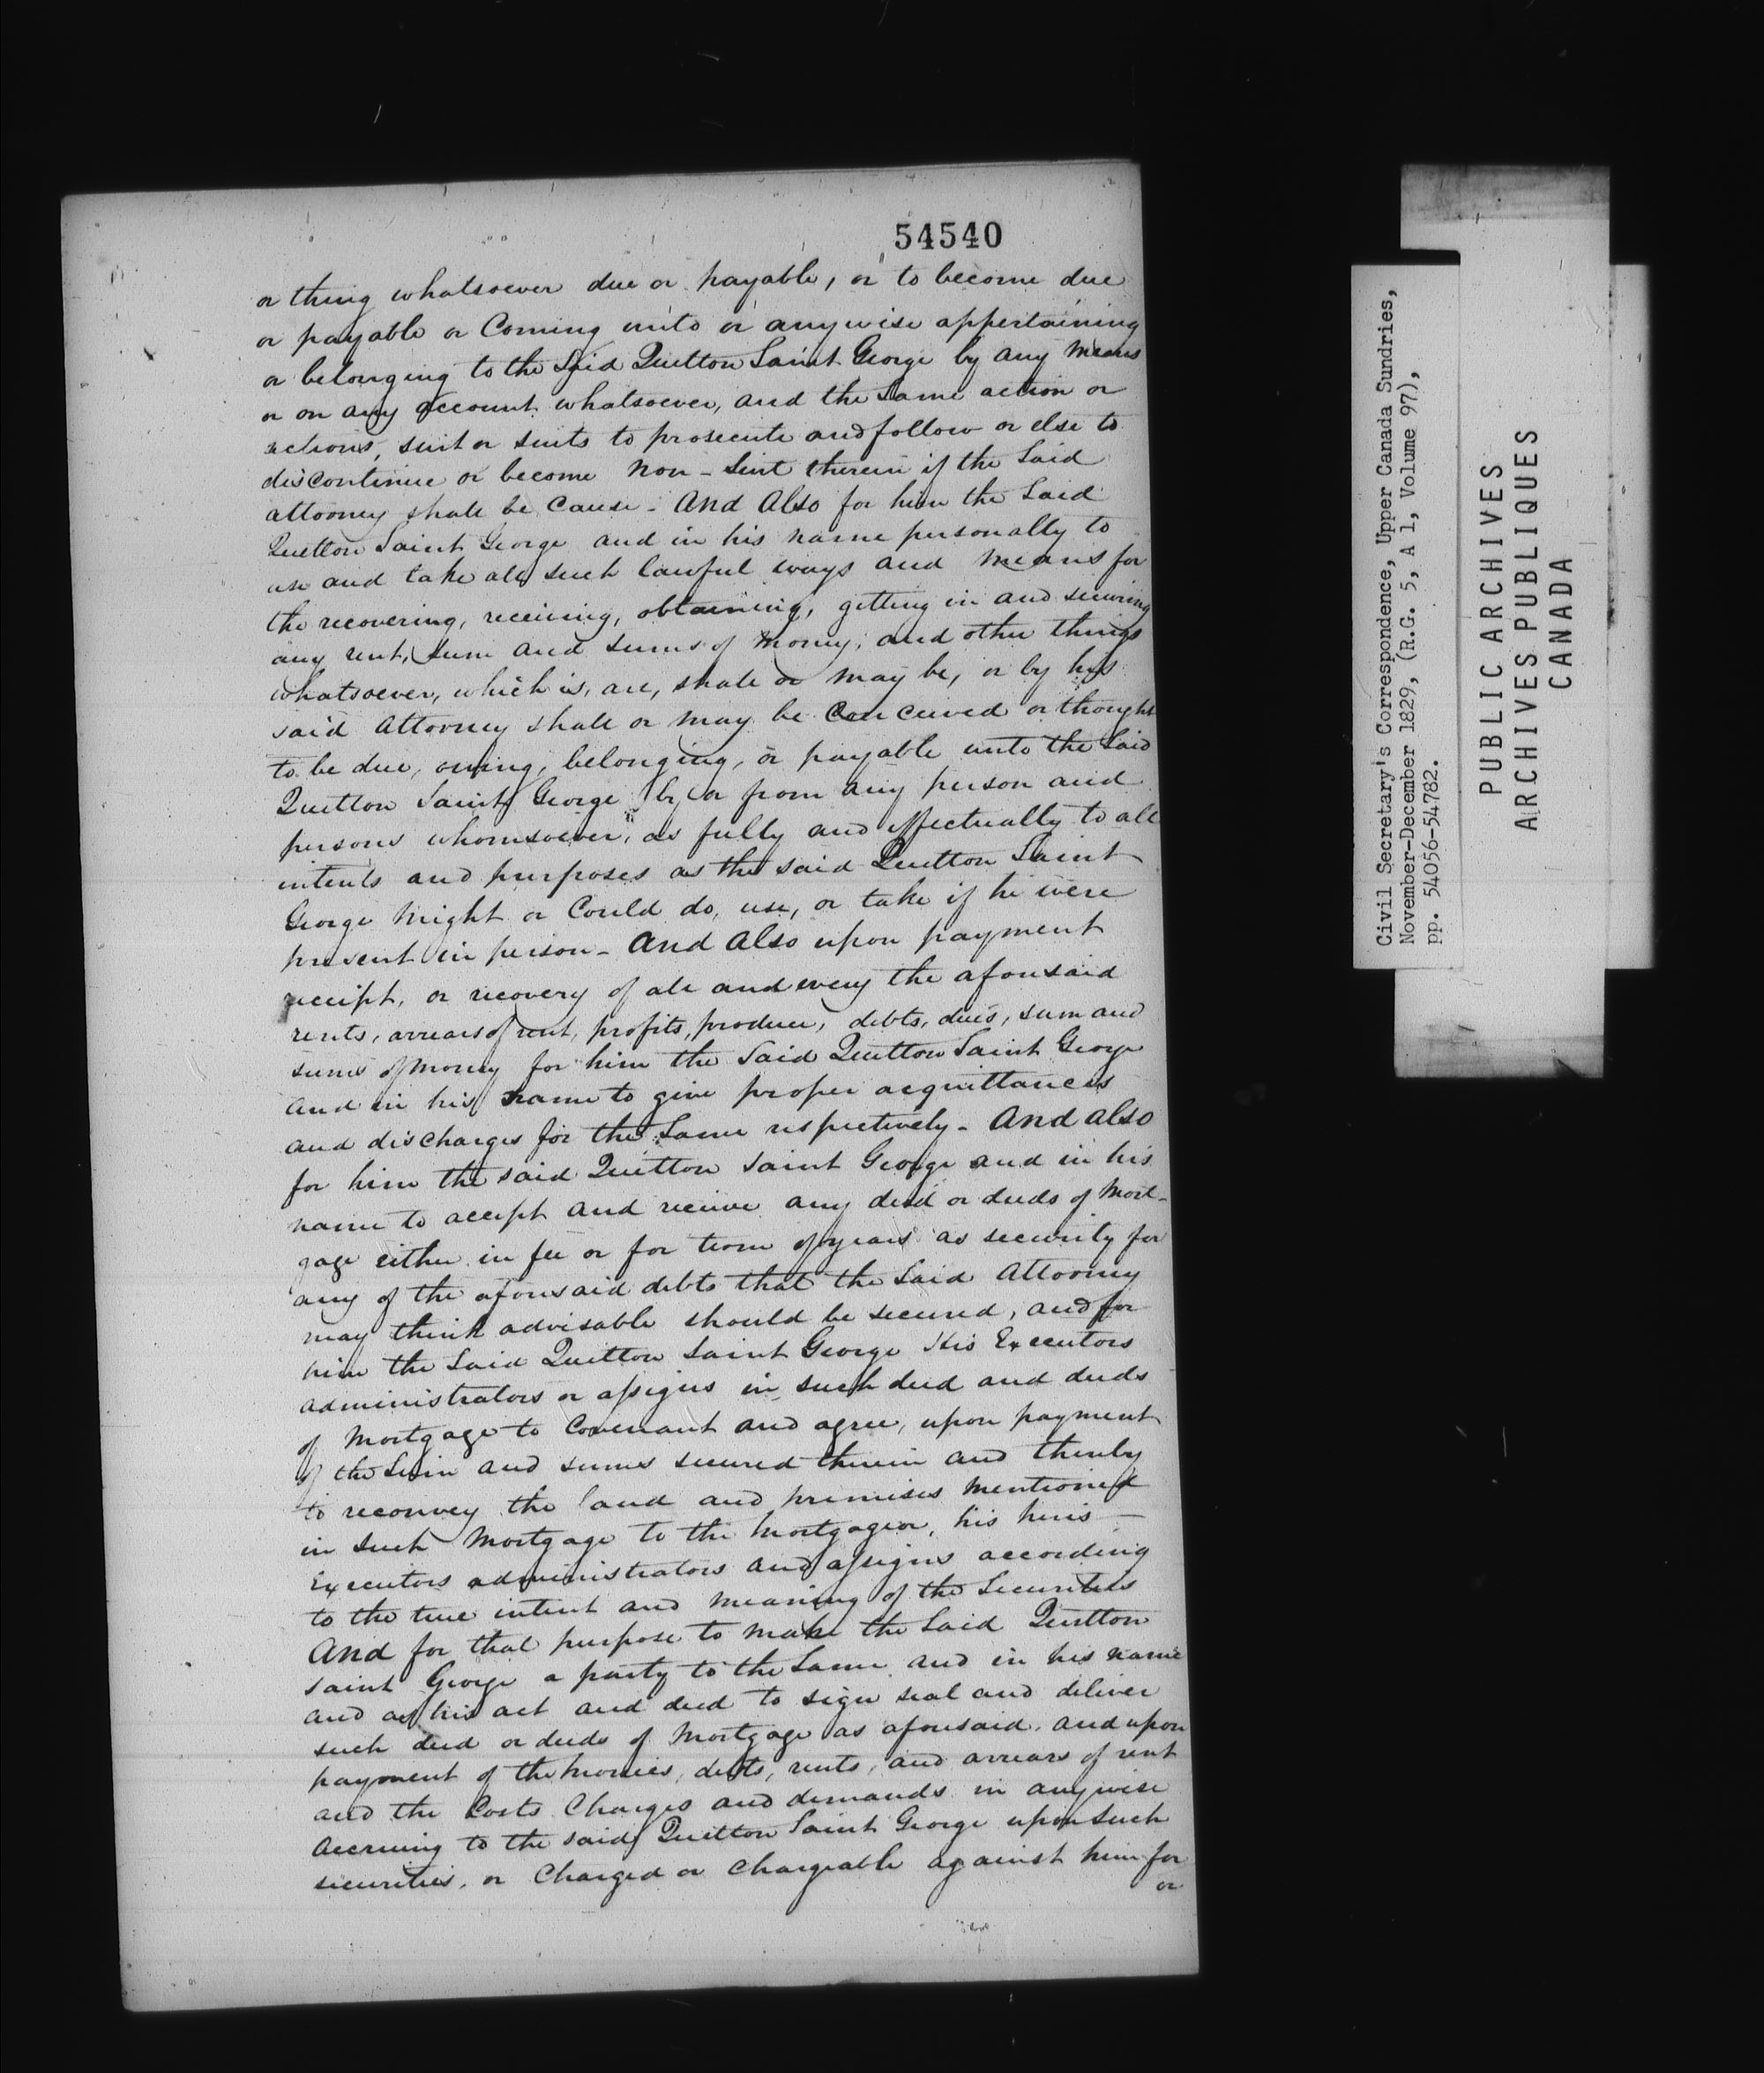 54540
or thing whatsoever due or payable, or to become due
or payable or Coming unto or anywise appertaining
or belonging to the Said Quetton Saint George by any means
or on any account whatsoever, and the Same action or
actions, suit or suits to prosecute and follow or else to
discontinue or become Non-Suit therein if the Said
attorney shall be Cause. And Also for him the Said
Quetton Saint George and in his name personally to
use and take all such lawful ways and Means for
the recovering, receiving, obtaining, getting in and securing
any rent, sum and sums of Money, and other things
whatsoever, which is, are, shall or may be, or by his
said Attorney shall or may be Conceived or thought
to be due, owing, belonging, or payable unto the Said
Quetton Saint George by or from any person and
persons whomsoever, as fully and effectually to all
intents and purposes as the said Quetton Saint
George Might or Could do, use, or take if he were
present in person - And Also upon payment
receipt, or recovery of all and every the aforesaid
rents, arrears of rent, profits, produce, debts, dues, sum and
sums of money for him the Said Quetton Saint George
and in his name to give proper acquittances
and discharges for the Same respectively - And also
for him the said Quetton Saint George and in his
name to accept and receive any deed or deeds of Mort-
gage either in fee or for term of years as security for
any of the aforesaid debts that the Said Attorney
may think advisable should be secured, and for
him the Said Quetton Saint George His Executors
administrators or assigns in such deed and deeds
of Mortgage to Covenant and agree, upon payment
of the Sum and sums secured therein and thereby
to reconvey the land and premises Mentioned
in Such Mortgage to the Mortgagor, his heirs -
Executors administrators and assigns according
to the true intent and meaning of the Securities
And for that purpose to make the Said Quetton
Saint George a party to the Same and in his name
and as his act and deed to sign seal and deliver
such deed or deeds of Mortgage as aforesaid. and upon
payment of the Monies, debts, rents, and arrears of rent
and the Costs Charges and demands in anywise
Accruing to the said Quetton Saint George upon such
securities, or Charged or Chargeable against him for
or
Civil Secretary's Correspondence, Upper Canada Sundries,
November-December 1829, (R.G. 5, A 1, Volume 97),
pp. 54056-54782.
PUBLIC ARCHIVES
ARCHIVES PUBLIQUES
CANADA